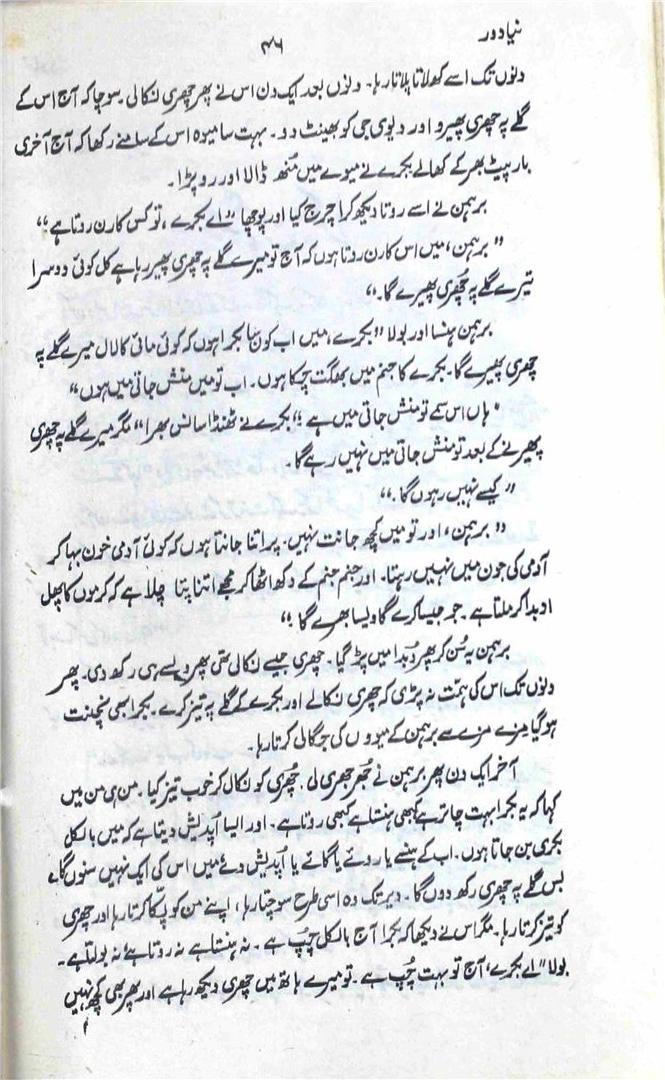 نیا دور
۴۶
دنوں تک اسے کھلاتا پلاتا رہا۔ دنوں بعد ایک دن اس نے پھر چھری نکالی۔ سوچا کہ آج اس کے
گلے پہ چھری پھیرو اور دیوی جی کو بھینٹ دو۔ بہت سا میوہ اس کے سامنے رکھا کہ آج آخری
بار پیٹ بھر کے کھا لے بکرے نے میوے میں منھ ڈالا اور رو پڑا۔
برہمن نے اسے روتا دیکھ کر اچرج کیا اور پوچھا "اے بکرے، تو کس کارن روتا ہے"؟
"برہمن، میں اس کارن روتا ہوں کہ آج تو میرے گلے پہ چھری پھیر رہا ہے کل کوئی دوسرا
تیرے گلے پہ چھری پھیرے گا۔"
برہمن ہنسا اور بولا "بکرے، میں اب کونسا بکرا ہوں کہ کوئی مائی کا لال میرے گلے پہ
چھری پھیرے گا۔ بکرے کا جنم میں بھگت چکا ہوں۔ اب تو میں منش جاتی میں ہوں"
"ہاں اس سمے تو منش جاتی میں ہے" بکرے نے ٹھنڈا سانس بھرا "مگر میرے گلے پہ چھری
پھیرنے کے بعد تو منش جاتی میں نہیں رہے گا۔
"کیسے نہیں رہوں گا۔"
"برہمن، اور تو میں کچھ جانت نہیں۔ پر اتنا جانتا ہوں کہ کوئی آدمی خون بہا کر
آدمی کی جون میں نہیں رہتا۔ اور جنم جنم کے دکھ اٹھا کر مجھے اتنا پتا چلا ہے کہ کرموں کا پھل
ادبدا کر ملتا ہے۔ جو جیسا کرے گا ویسا بھرے گا"!
برہمن یہ سُن کر پھر دُبدا میں پڑ گیا۔ چھری جیسے نکالی تھی پھر ویسے ہی رکھ دی۔ پھر
دنوں تک اس کی ہمّت نہ پڑی کہ چھری نکالے اور بکرے کے گلے پہ تیز کرے۔ بکرا بھی نچنت
ہو گیا مزے مزے سے برہمن کے میووں کی جگالی کرتا رہا۔
آخر ایک دن پھر برہمن نے جُھرجھری لی۔ چُھری کو نکال کر خوب تیز کیا۔ من ہی من میں
کہا کہ یہ بکرا بہت چاتر ہے کبھی ہنستا ہے کبھی روتا ہے۔ اور ایسا اُپدیش دیتا ہے کہ میں بالکل
بکری بن جاتا ہوں۔ اب کے ہنسے یا روئے یا گائے یا اُپدیش دئے میں اس کی ایک نہیں سنوں گا،
بس گلے پہ چھری رکھ دوں گا۔ دیر تک وہ اسی طرح سوچتا رہا، اپنے من کو پکّا کرتا رہا اور چھری
کو تیز کرتا رہا۔ مگر اس نے دیکھا کہ بکرا آج بالکل چپ ہے۔ نہ ہنستا ہے نہ روتا ہے نہ بولتا ہے۔
بولا "اے بکرے، آج تو بہت چُپ ہے۔ تو میرے ہاتھ میں چھری دیکھ رہا ہے اور پھر بھی کچھ نہیں